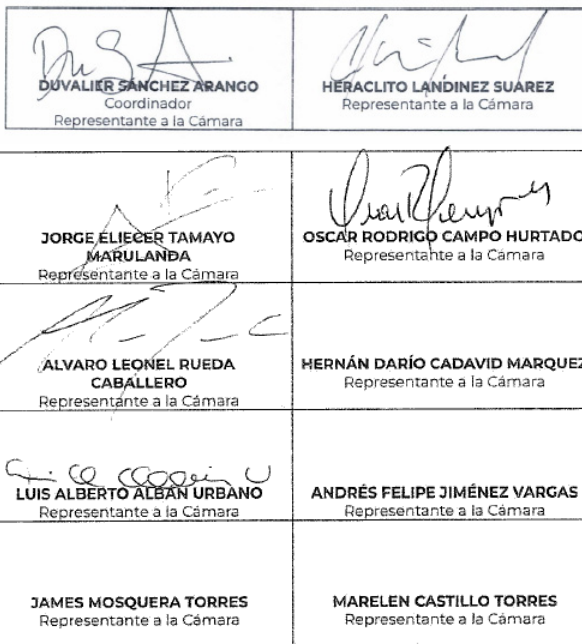 DUVALIER SÁNCHEZ ARANGO
Coordinador
Representante a la Cámara
HERACLITO LANDINEZ SUÁREZ
Representante a la Cámara
JORGE ELIECER TAMAYO
MARULANDA
Representante a la Cámara
OSCAR RODRIGO CAMPO HURTADO
Representante a la Cámara
ALVARO LEONEL RUEDA
CABALLERO
Representante a la Cámara
HERNÁN DARÍO CADAVID MARQUEZ
Representante a la Cámara
LUIS ALBERTO ALBAN URBANO
Representante a la Cámara
ANDRÉS FELIPE JIMÉNEZ VARGAS
Representante a la Cámara
JAMES MOSQUERA TORRES
Representante a la Cámara
MARELEN CASTILLO TORRES
Representante a la Cámara